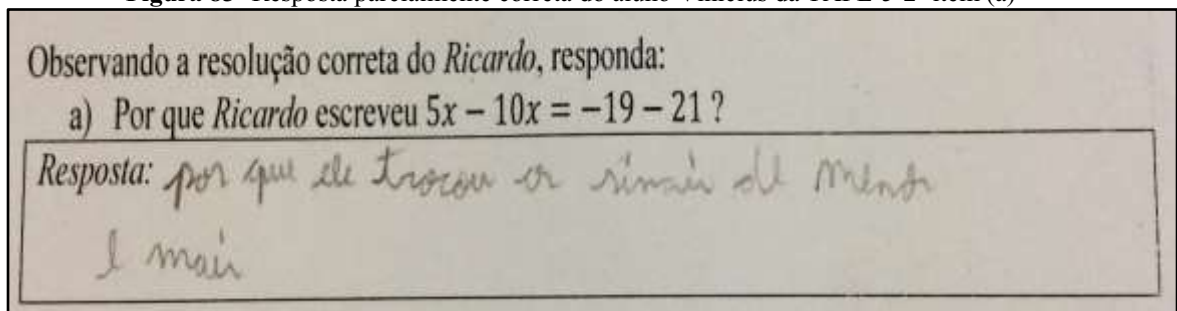 Observando a resolução correta do Ricardo, responda:
a) Por que Ricardo escreveu 5x − 10x = −19 − 21 ?
Resposta: por que ele trocou os sinais de menos
e mais